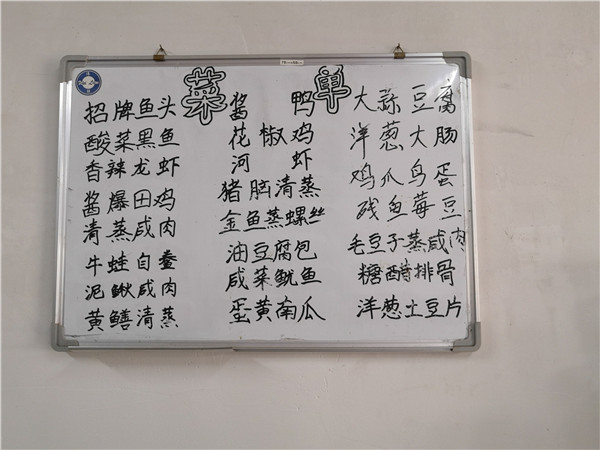 菜单
招牌鱼头
酸菜黑鱼
香辣龙虾
酱爆田鸡
清蒸咸肉
牛蛙白鲞
泥鳅咸肉
黄鳝清蒸
酱鸭
花椒鸡
河虾
猪脑清蒸
金鱼蒸螺丝
油豆腐包
咸菜鱿鱼
蛋黄南瓜
大蒜豆腐
洋葱大肠
鸡爪鸟蛋
鱼莓豆
毛豆子蒸咸肉
糖醋排骨
洋葱土豆片